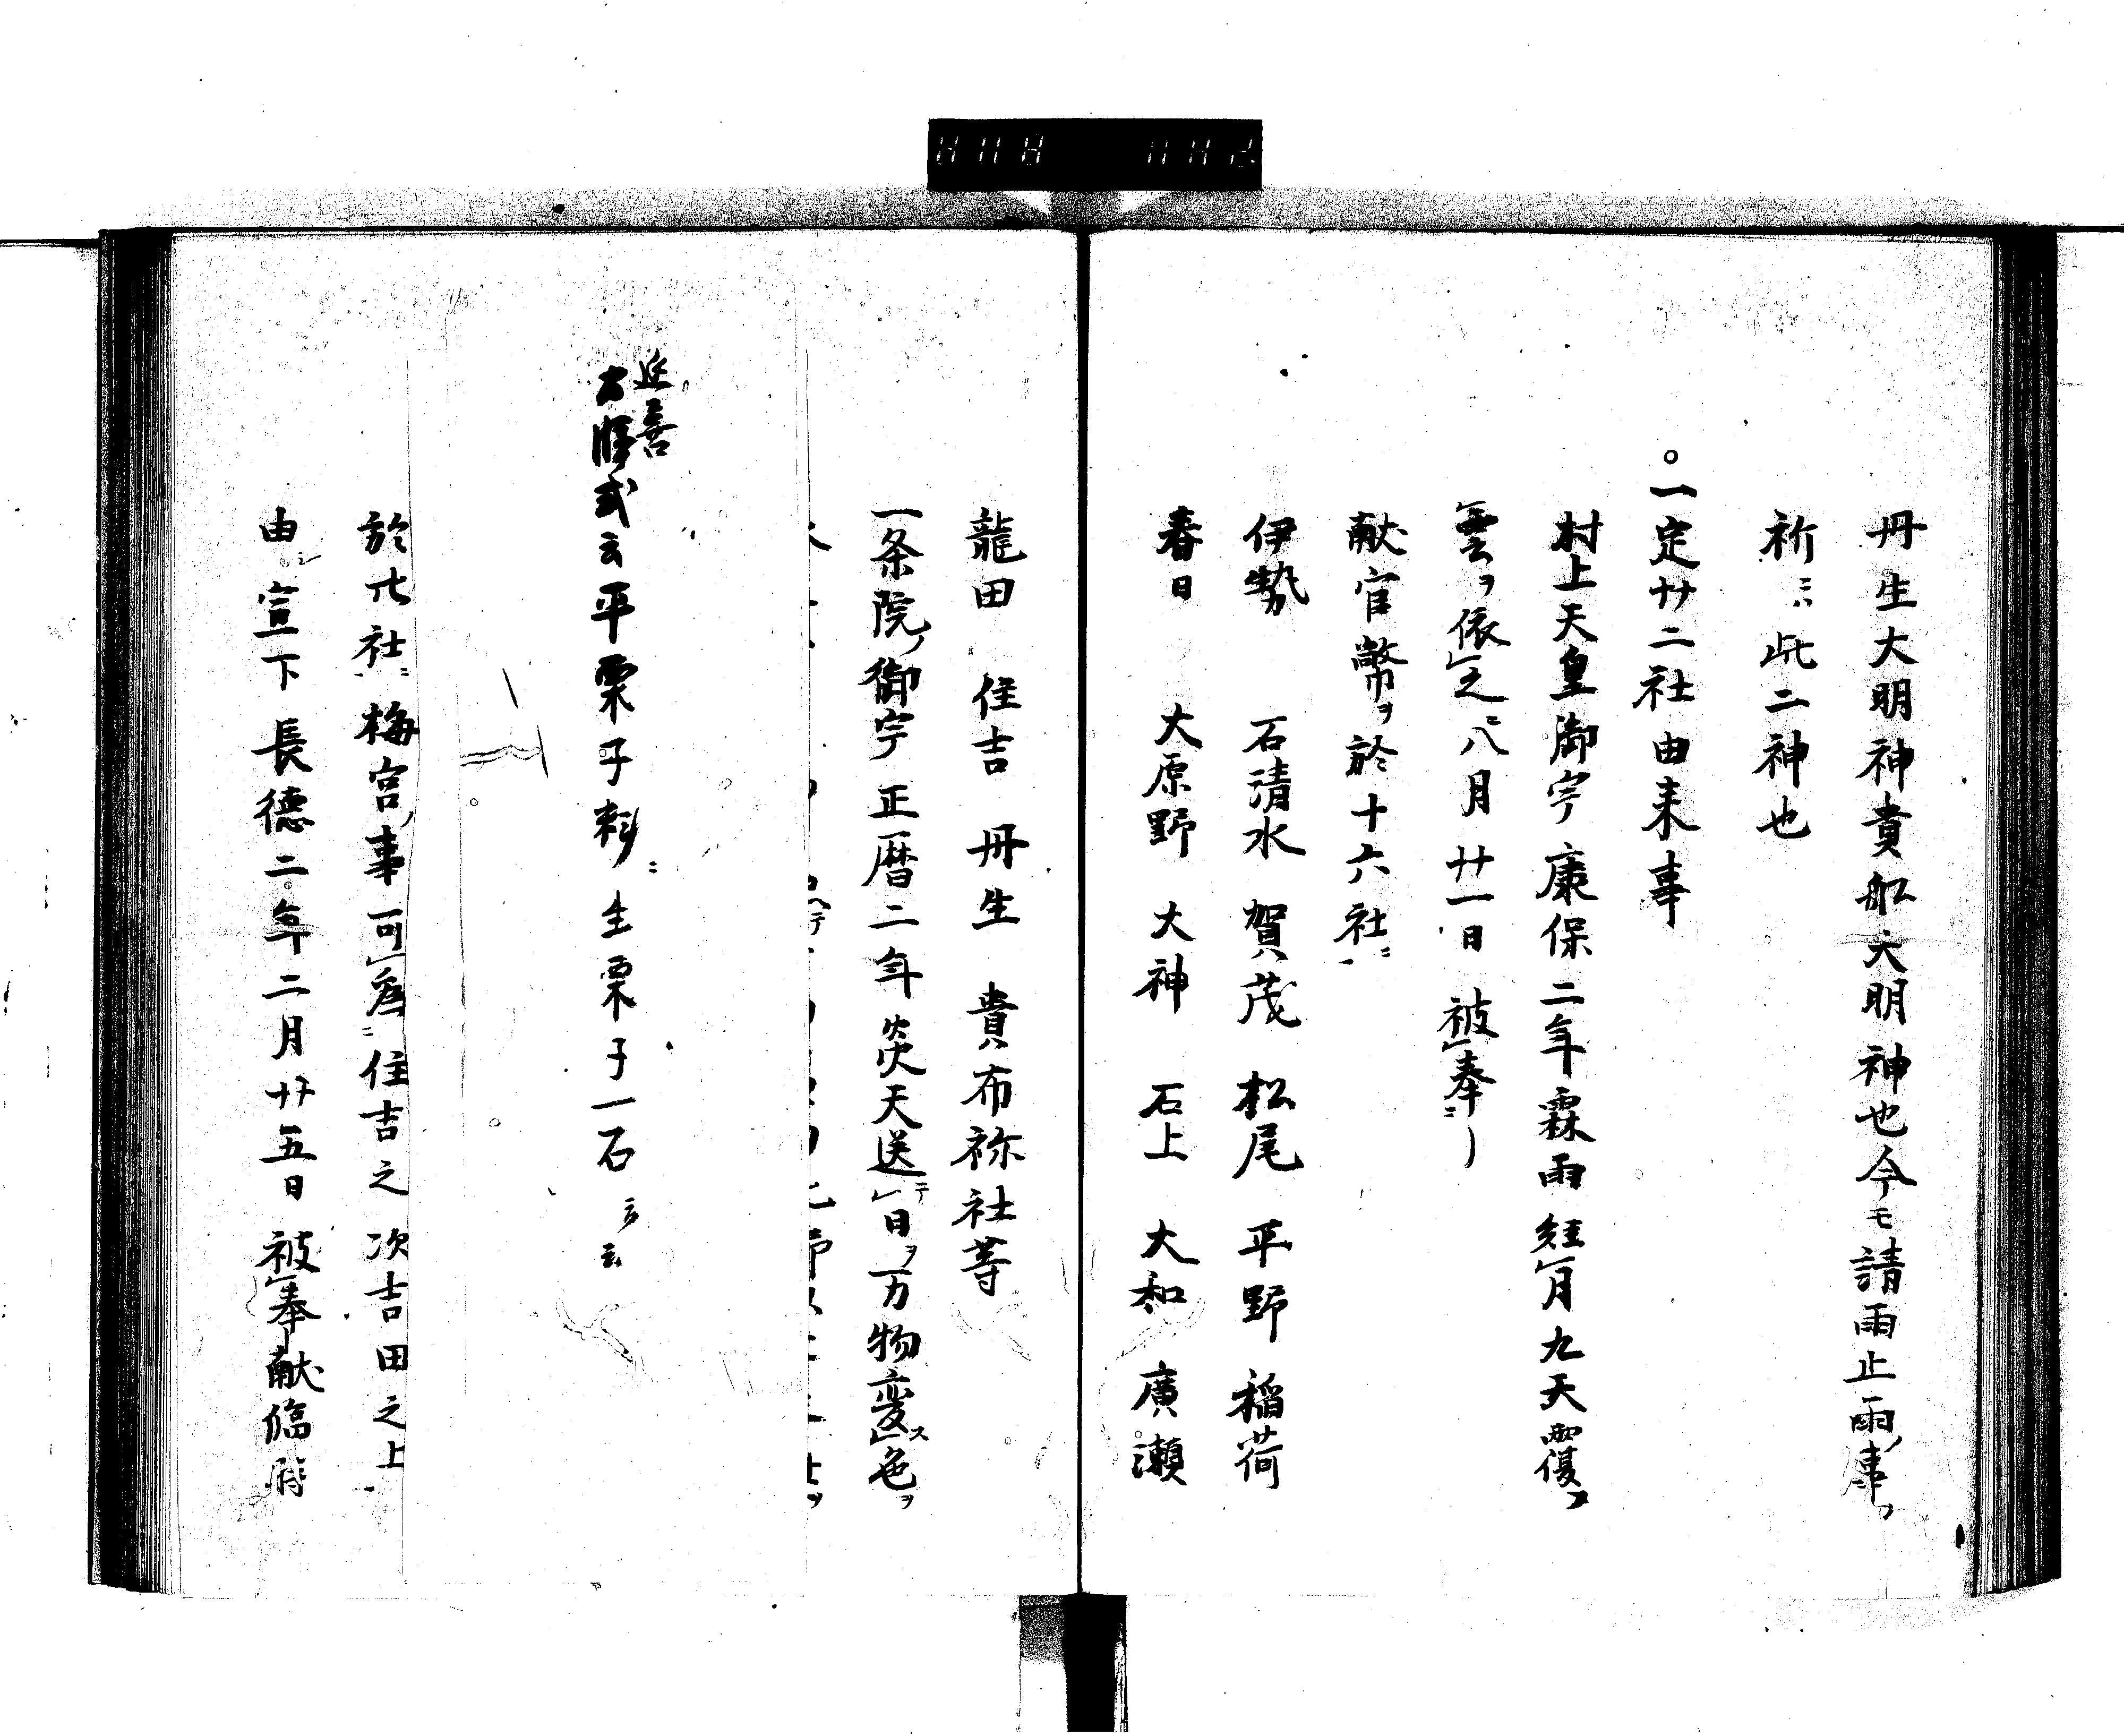 丹生大明神貴船大明神也今モ請雨止雨ノ事ヲ
祈ニハ此二神也
○一定廿二社由来事
村上天皇御宇康保二年霖雨経月九天覆ヲ
雲ヲ依之ニ八月廿一日被奉ニ
献官幣ヲ於十六社ニ
伊勢 石清水 賀茂 松尾 平野 稲荷
春日 大原野 大神 石上 大和 廣瀬
龍田 住吉 丹生 貴布祢社等
一条院ノ御宇正暦二年炎天送テ日ヲ万物変ス色ヲ
延喜
式云平栗子料ニ生栗子一石云云
於此社ニ梅宮ノ事可為ニ住吉之次吉田之上
由 宣下長徳二年二月廿五日被奉献臨時